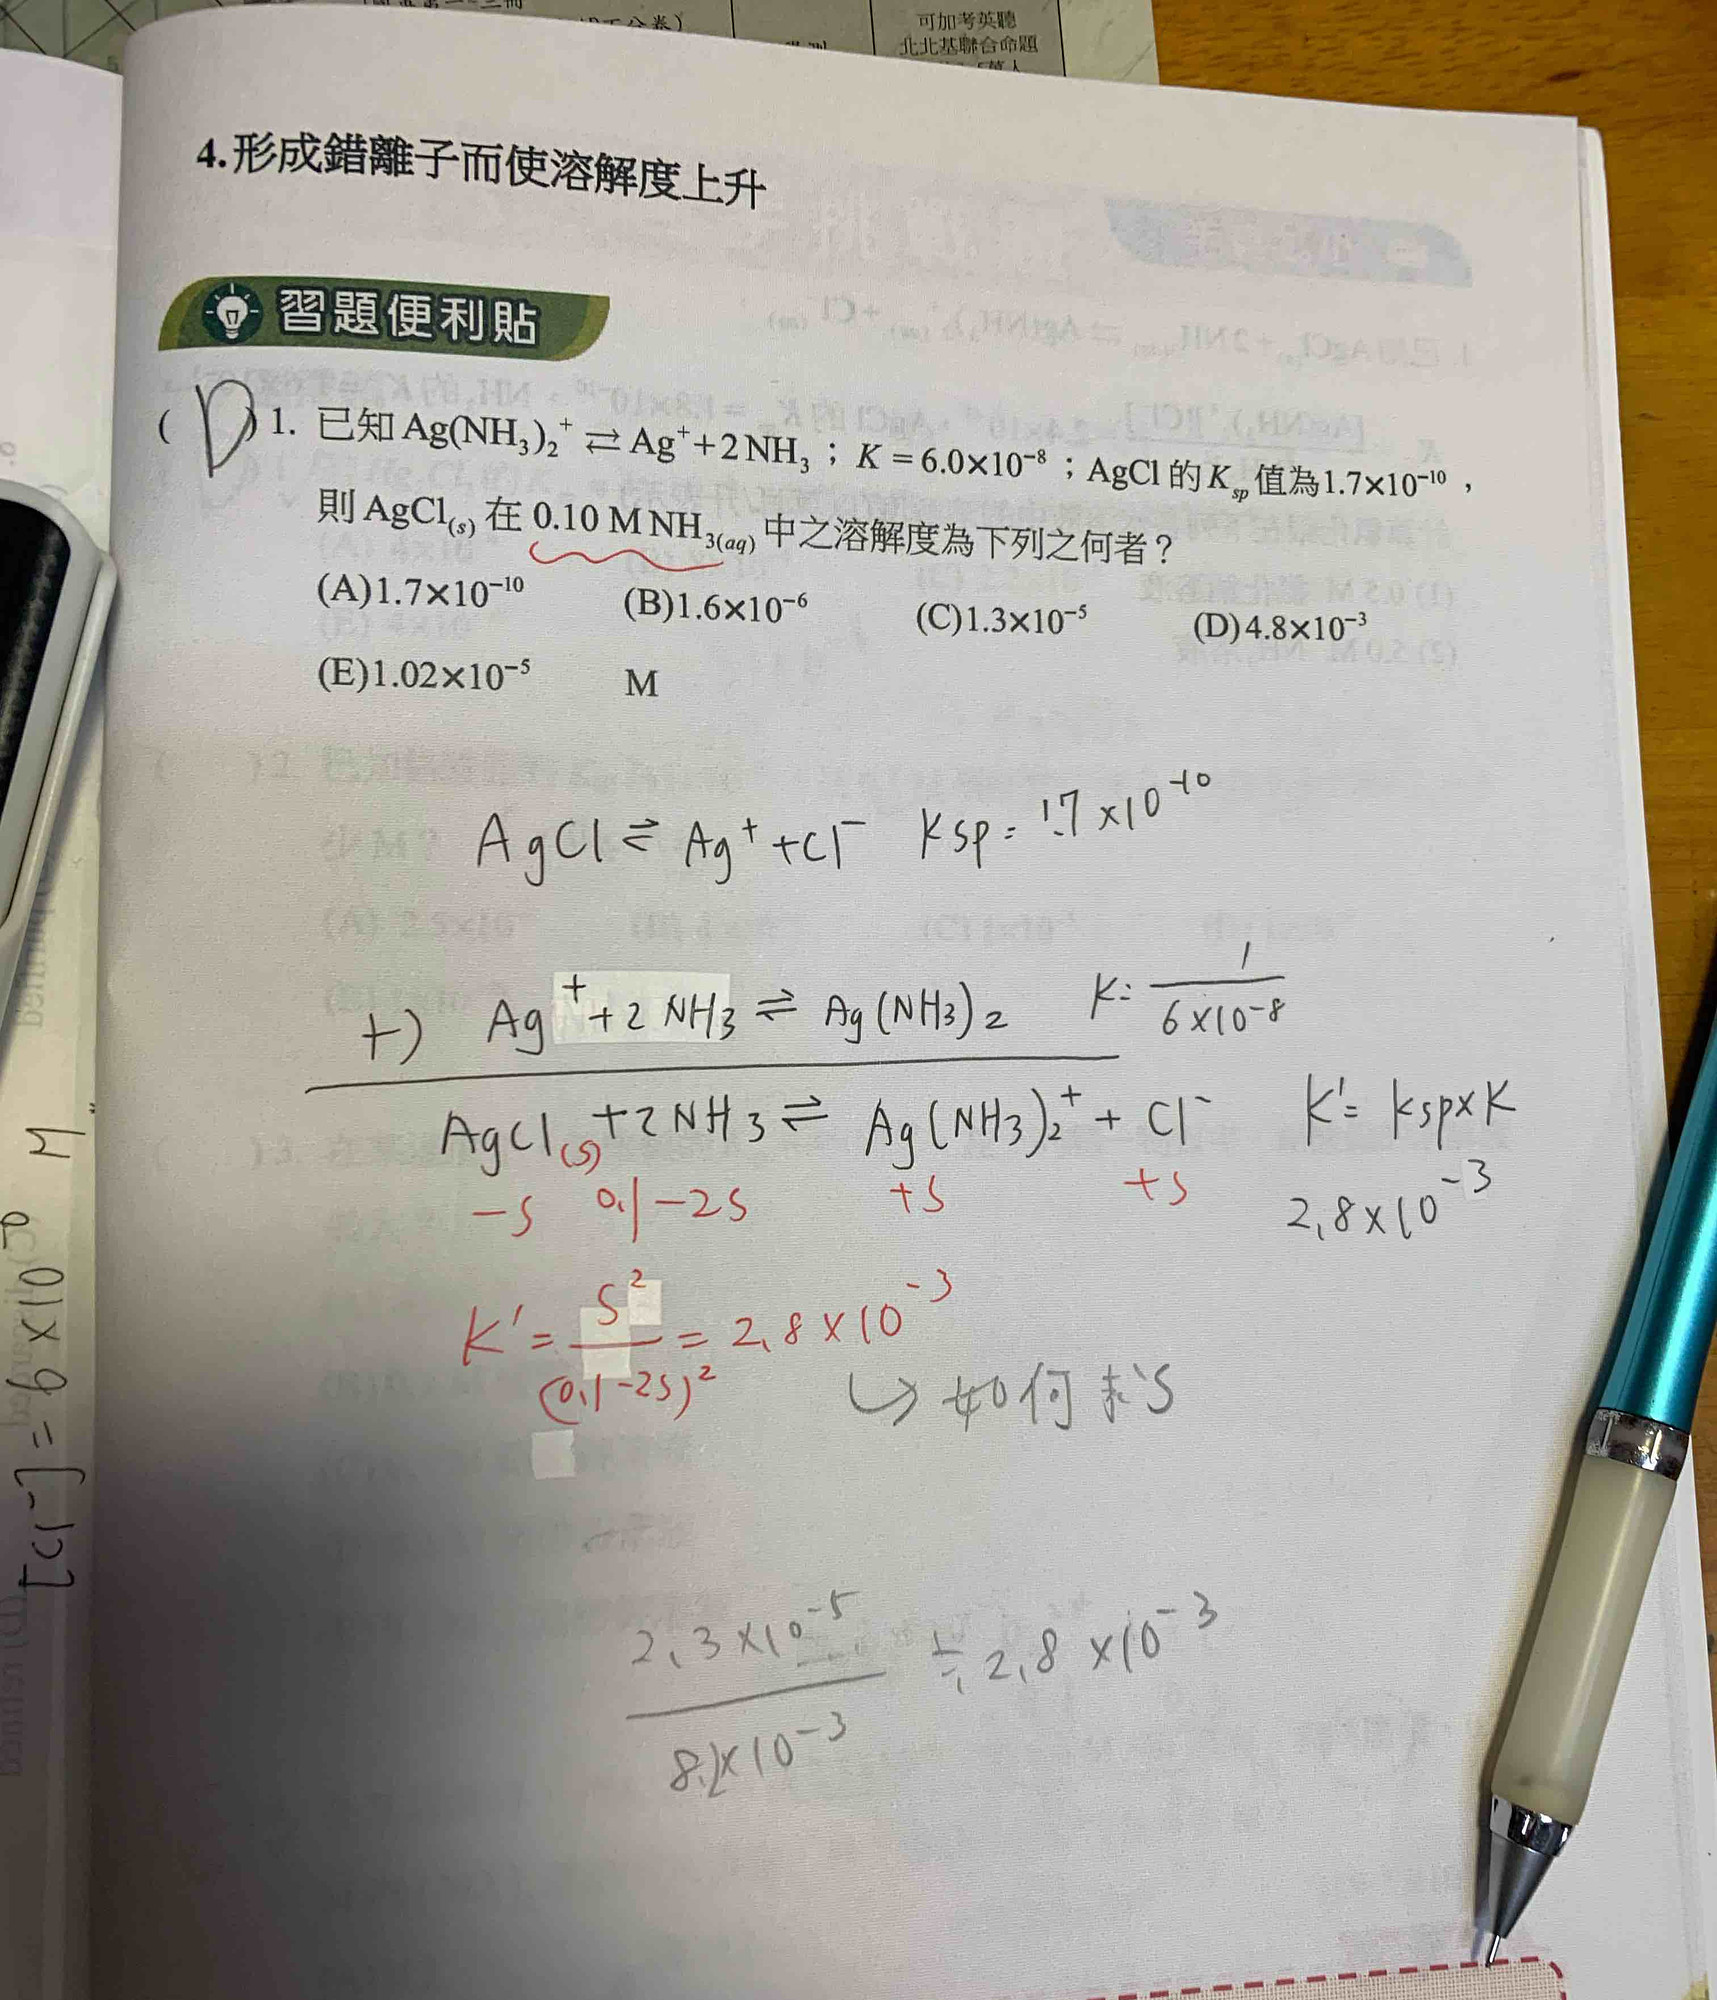 可加考英聽
北北基聯合命題
4.形成錯離子而使溶解度上升
習題便利貼
( D ) 1. 已知 Ag(NH₃)₂⁺ ⇄ Ag⁺+2NH₃ ; K=6.0×10⁻⁸ ; AgCl 的 Ksp 值為1.7×10⁻¹⁰ ,
則 AgCl(s) 在 0.10 M NH₃(aq) 中之溶解度為下列之何者？
(A)1.7×10⁻¹⁰ (B)1.6×10⁻⁶ (C)1.3×10⁻⁵ (D)4.8×10⁻³
(E)1.02×10⁻⁵ M
AgCl ⇌ Ag⁺ +Cl⁻ Ksp = 1.7 ×10⁻¹⁰
+) Ag⁺ + 2 NH3 ⇌ Ag (NH3)2 K= 1/6×10⁻⁸
AgCl(s) +2NH3 ⇌ Ag(NH3)2⁺ + Cl⁻ K'= Ksp×K
-S 0.1-2S +S +S 2.8×10⁻³
K' = S²/(0.1-2S)² = 2.8×10⁻³
↳ 如何求S
2.3×10⁻⁵/8.2×10⁻³ ÷ 2.8 ×10⁻³
[Cl⁻] = 6×10 M